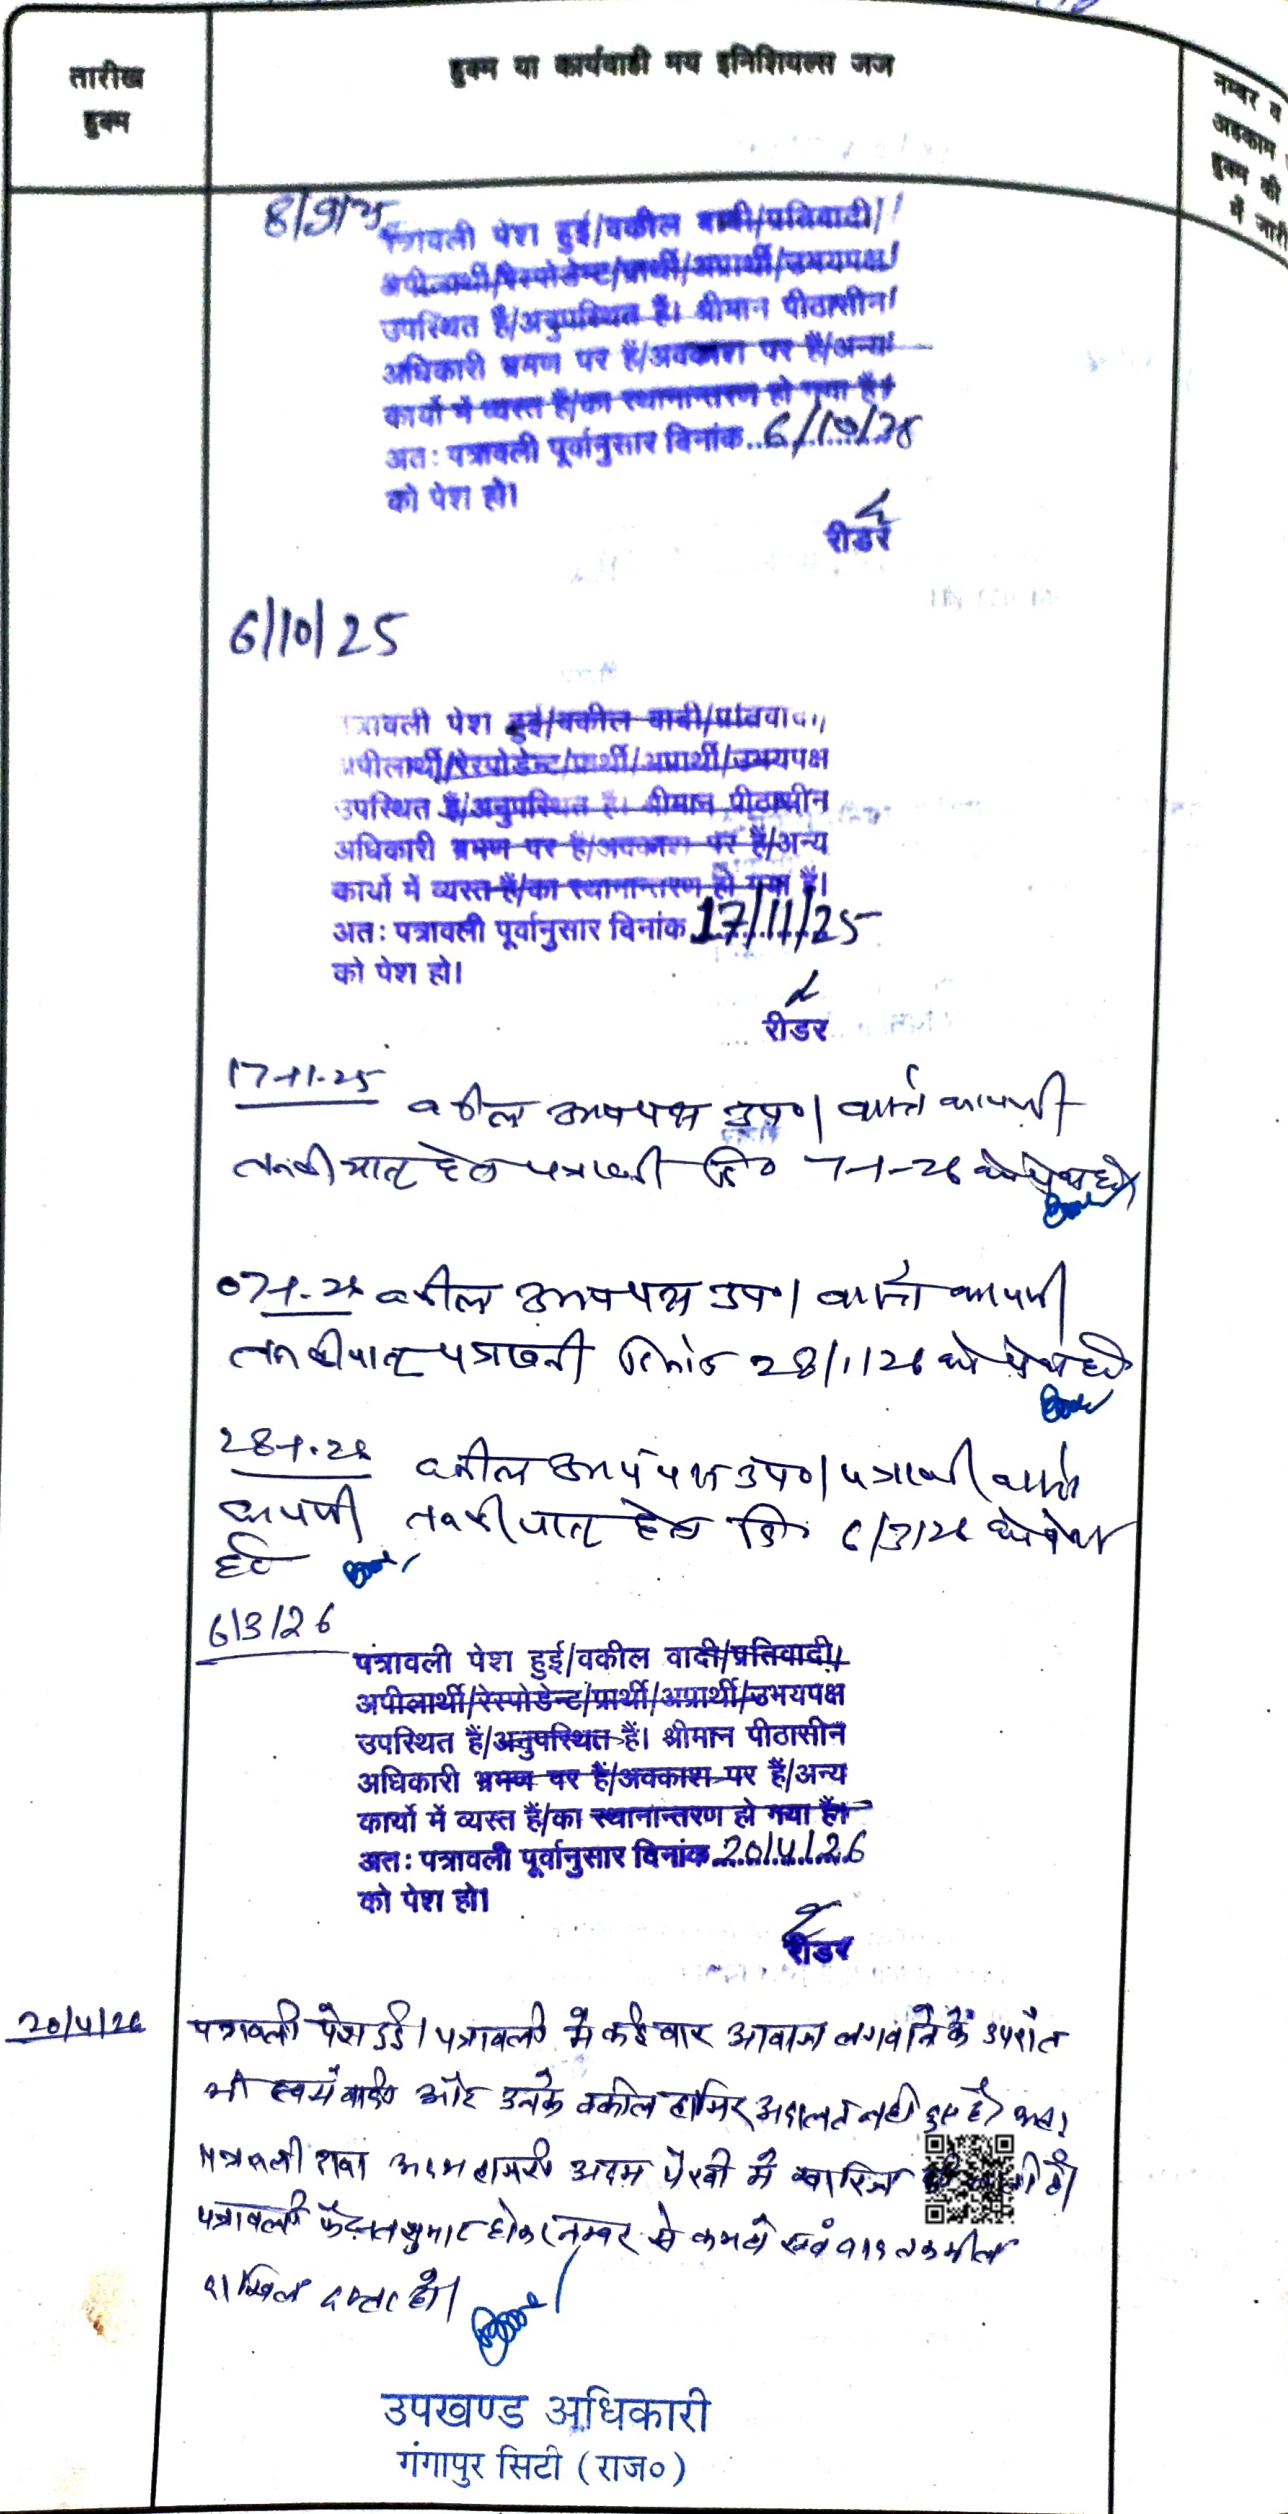 तारीख
हुक्म
हुक्म या कार्यवाही मय इनिशियल्स जज
नम्बर व
अहकाम
हुक्म की
में जारी
8/9/25
पत्रावली पेश हुई/वकील वादी/प्रतिवादी/
अपीलार्थी/रेस्पोडेन्ट/प्रार्थी/अप्रार्थी/उभयपक्ष
उपस्थित हैं/अनुपस्थित हैं। श्रीमान पीठासीन
अधिकारी भ्रमण पर हैं/अवकाश पर हैं/अन्य
कार्यो में व्यस्त हैं/का स्थानान्तरण हो गया हैं।
अतः पत्रावली पूर्वानुसार दिनांक 6/10/25
को पेश हो।
रीडर
6/10/25
पत्रावली पेश हुई/वकील वादी/प्रतिवादी/
अपीलार्थी/रेस्पोडेन्ट/प्रार्थी/अप्रार्थी/उभयपक्ष
उपस्थित हैं/अनुपस्थित हैं। श्रीमान पीठासीन
अधिकारी भ्रमण पर हैं/अवकाश पर हैं/अन्य
कार्यो में व्यस्त हैं/का स्थानान्तरण हो गया हैं।
अतः पत्रावली पूर्वानुसार दिनांक 17/11/25
को पेश हो।
रीडर
17-11-25
वकील उभयपक्ष उप०। वास्ते कायमी
तनकीयात हेतु पत्रावली दि० 7-1-26 को पेश हो
07-1-26 वकील उभयपक्ष उप०। वास्ते कायमी
तनकीयात पत्रावली दिनांक 28/1/26 को पेश हो
28-1-26 वकील उभयपक्ष उप०। पत्रावली वास्ते
कायमी तनकीयात हेतु दि० 6/3/26 को पेश
हो
6/3/26
पंत्रावली पेश हुई/वकील वादी/प्रतिवादी/
अपीलार्थी/रेस्पोडेन्ट/प्रार्थी/अप्रार्थी/उभयपक्ष
उपस्थित हैं/अनुपस्थित हैं। श्रीमान पीठासीन
अधिकारी भ्रमण पर हैं/अवकाश पर हैं/अन्य
कार्यो में व्यस्त हैं/का स्थानान्तरण हो गया हैं।
अतः पत्रावली पूर्वानुसार दिनांक 20/4/26
को पेश हो।
रीडर
20/4/26
पत्रावली पेश हुई। पत्रावली मे कई बार आवाज लगवाने के उपरांत
भी स्वयं वादी और उनके वकील हाजिर अदालत नही हुए है। अतः
पत्रावली अदम हाजरी अदम पैरवी मे खारिज की जाती है।
पत्रावली फैसल शुमार होकर नम्बर से कम हो एवं बाद तकमील
दाखिल दफ्तर हो।
उपखण्ड अधिकारी
गंगापुर सिटी (राज०)